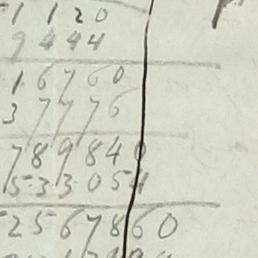 1 1 2 0
9 4 4 4
1 6 7 6 0
3 7 7 7 6
7 8 9 8 4 0
5 3 3 0 5 4
2 5 6 7 8 6 0